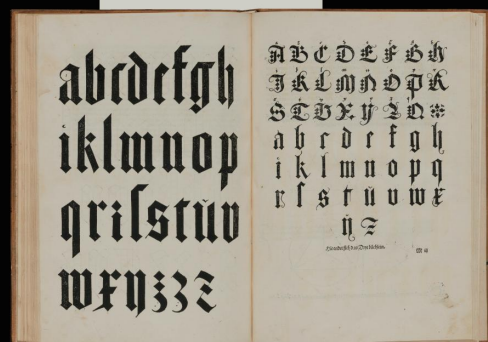 abcdefgh
iklmnop
qriſstuv
wxyzzz
A B C D E F G H
I K L M N O P R
S T V X Y Z Q
a b c d e f g h
i k l m n o p q
r ſ s t u v w x
y z